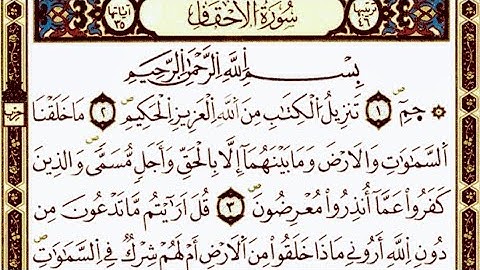 ترتيبها ٤٦ سُورَةُ الْأَحْقَافِ آياتها ٣٥
بِسْمِ اللَّهِ الرَّحْمَٰنِ الرَّحِيمِ
حمٓ ﴿١﴾ تَنْزِيلُ الْكِتَابِ مِنَ اللَّهِ الْعَزِيزِ الْحَكِيمِ ﴿٢﴾ مَا خَلَقْنَا
السَّمَاوَاتِ وَالْأَرْضَ وَمَا بَيْنَهُمَا إِلَّا بِالْحَقِّ وَأَجَلٍ مُّسَمًّى وَالَّذِينَ
كَفَرُوا عَمَّا أُنْذِرُوا مُعْرِضُونَ ﴿٣﴾ قُلْ أَرَأَيْتُم مَّا تَدْعُونَ مِن
دُونِ اللَّهِ أَرُونِي مَاذَا خَلَقُوا مِنَ الْأَرْضِ أَمْ لَهُمْ شِرْكٌ فِي السَّمَاوَاتِ
حزب